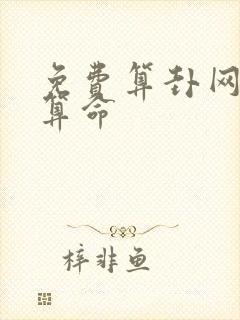 免费算卦网
算命
梓非鱼